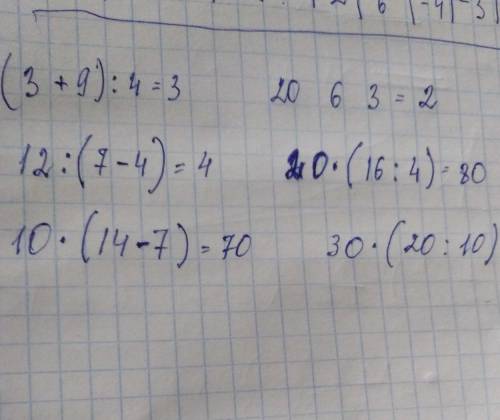 2 | 6 | -4 | -3 |
(3 + 9) : 4 = 3
20 6 3 = 2
12 : (7 - 4) = 4
20 · (16 : 4) = 80
10 · (14 - 7) = 70
30 · (20 : 10)